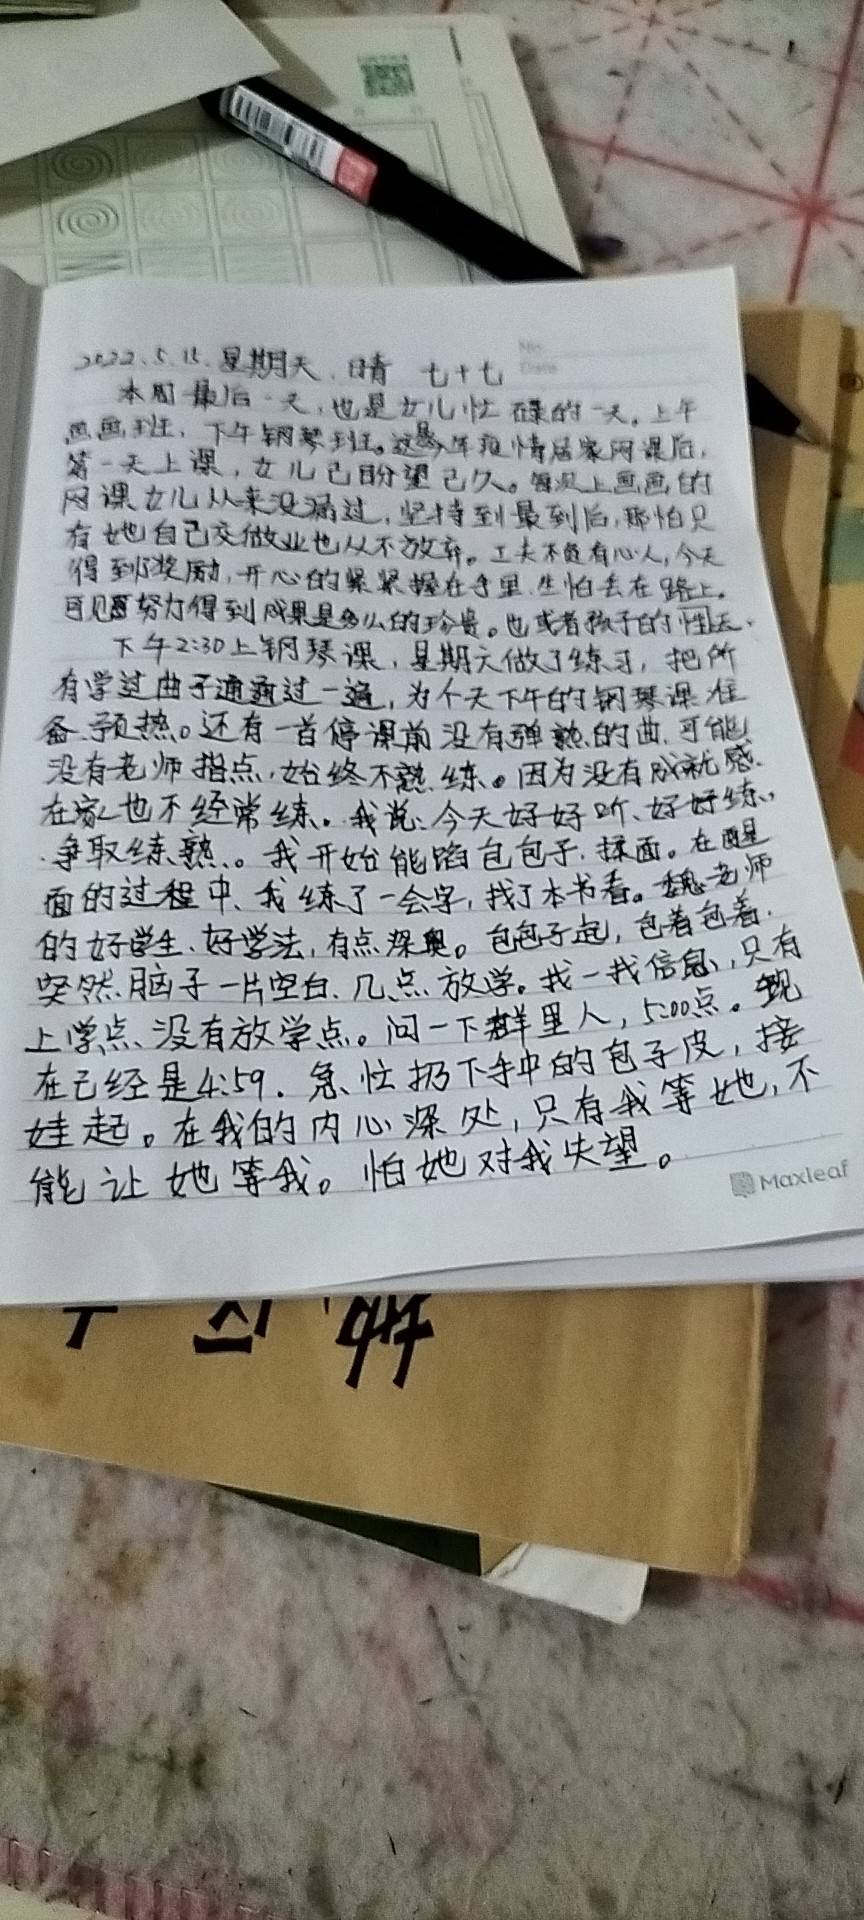 2022.5.15.星期天.晴 七十七
No.
Date
本周最后一天,也是女儿忙碌的一天。上午
画画班,下午钢琴班。这是今年疫情居家网课后,
第一天上课,女儿已盼望已久。每次上画画的
网课女儿从来没漏过,坚持到最到后,那怕只
有她自己交做业也从不放弃。工夫不负有心人,今天
得到了奖励,开心的紧紧握在手里.生怕丢在路上。
可见努力得到成果是多么的珍贵。也或者孩子的性
下午2:30上钢琴课,星期六做了练习,把所
有学过曲子通通过一遍,为今天下午的钢琴课准
备预热。还有一首停课前没有弹熟的曲.可能
没有老师指点,始终不熟练。因为没有成就感.
在家也不经常练。我说、今天好好听、好好练、
争取练熟。我开始能馅包包子.揉面。在醒
面的过程中、我练了一会字,找了本书看。魏老师
的好学生.好学法,有点深奥。包包子起,包着包着.
突然脑子一片空白.几点放学。找一找信息,只有
上学点、没有放学点。问一下群里人,5:00点。现
在已经是4:59.急忙扔下手中的包子皮,接
娃起。在我的内心深处,只有我等她,不
能让她等我。怕她对我失望。
Maxleaf